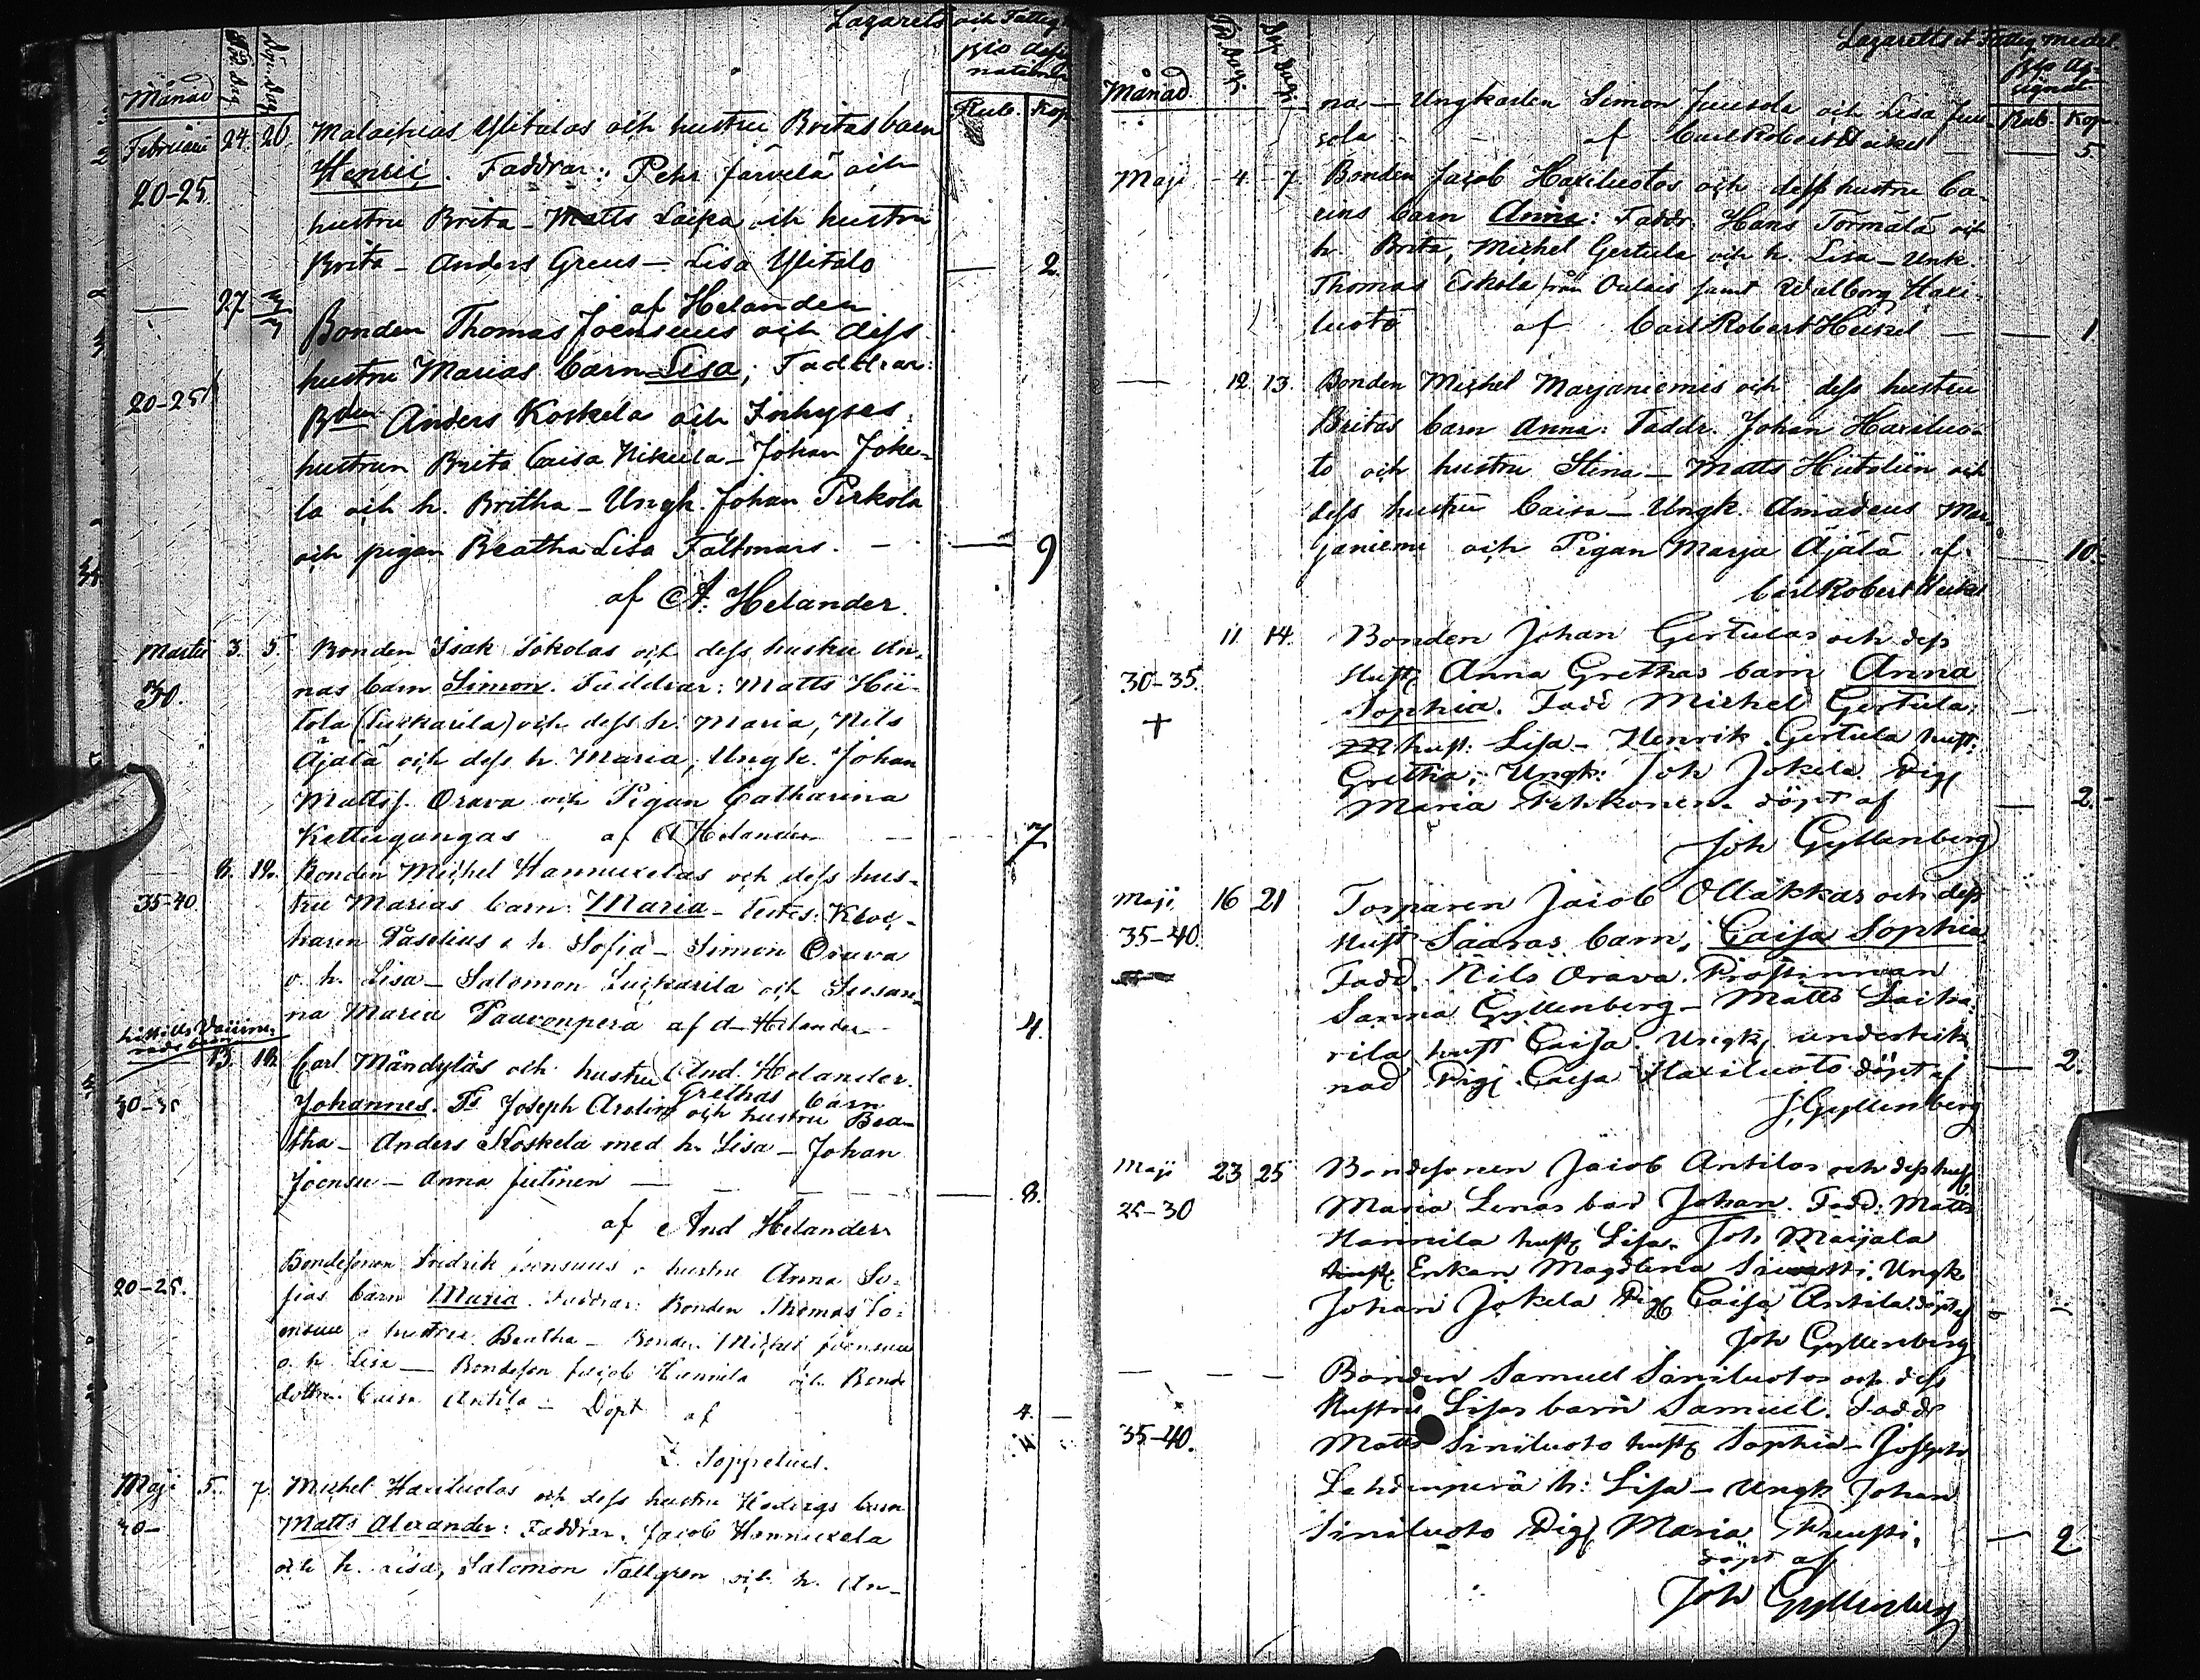 Lazarets och Fattig
pro desig
nation
Månad
Föd. dag
Döpe dag
Rub. Kop.
Februarii 24. 26. Malachias Ylitalos och hustru Britas barn
20-25. Henric. Faddrar: Pehr Järvelä och
hustru Brita - Matts Laipa och hustru
Brita - Anders Greus - Lisa Ylitalo — 2.
af Helander
— 27 Bonden Thomas Joensuus och dess
hustru Marias barn Lisa; Faddrar:
20-25 Bden Anders Koskela och Inhyses
hustrun Brita Caisa Nikula - Johan Joke-
la och h. Britha - Ungk. Johan Pirkola
och pigan Beatha Lisa Fältmars. — 9
af A. Helander.
Martii 3. 5. Bonden Isak Sokolas och dess hustru An-
30. nas barn Simon. Faddrar: Matts Hii-
tola (Luckarila) och dess h. Maria, Nils
Äjälä och dess h. Maria, Ungk. Johan
Mattss. Orava och Pigan Catharina
Kettukangas af A Helander — 7
8. 12. Bonden Michel Hannukelas och dess hus-
35-40. tru Marias barn: Maria - testes: Kloc-
karen Paselius o h. Sofia - Simon Orava
o. h. Lisa - Salomon Luckarila och Susan-
na Maria Paavonperä af A Helander — 4.
13. 18. Carl Mändyläs och hustru And. Helander.
Grethas barn
30-35 Johannes. Fr Joseph Arolin och hustru Bea-
tha - Anders Koskela med h. Lisa - Johan
Joensu - Anna Jutinen — 8.
af And Helander
Bondesonen Fredrik Joensuus o hustru Anna So-
20-25. fias barn Maria. Faddrar: Bonden Thomas Jo-
ensuu o hustru Beatha - Bonden Michel Joensuu
o. h. Lisa — Bondeson Jacob Hannila och Bonde
dottren Caisa Antila - Döpt af 4. —
Z. Topelius. 4.
Maji 5. 7. Michel Haxiluotos och dess hustru Hedvigs barn
30- Matts Alexander: Faddrar. Jacob Hannukela
och h. Lisa, Salomon Tallgren och h. An-
Lazaretts et Fattig medel.
pro as-
signat
Månad.
Föd. dag.
Döp. dag.
Rub. Kop.
na - Ungkarlen Simon Juusola och Lisa Juu-
sola - - af Carl Robert Heikel — 5.
Maji - 4. - 7 Bonden Jacob Haxiluotos och dess hustru Ca-
rins barn Anna: Faddr. Hans Törmälä och
h. Brita, Michel Gertula och h. Lisa - Unk.
Thomas Eskola från Oulais samt Walborg Haxi-
luoto af Carl Robert Heikel — 1
— 12. 13. Bonden Michel Marjaniemis och dess hustru
Britas barn Anna: Faddr. Johan Haxiluo-
to och hustru Stina - Matts Hiitoliin och
dess hustru Caisa - Ungk. Amadeus Mar-
janiemi och Pigan Marja Äjälä af — 10.
Carl Robert Heikel
11. 14. Bonden Johan Gertulas och dess
30-35. Hust. Anna Grethas barn Anna
+ Sophia. Fadd Michel Gertula,
hust: Lisa - Henrik Gertula hust:
Gretha, Ungk: Joh Jokela Pig.
Maria Pehkonen. döpt af — 2. -
Joh Gyllenberg
Maji 16 21 Torparen Jacob Ollakkas och dess
35-40. Hust Saaras barn, Caisa Sophia.
Fadd. Nils Orava. Prostinnan
Sanna Gyllenberg - Matts Laika-
rila hust Caisa. Ungk. underteck
nad Pig. Caisa Haxiluoto döpt af — 2.
J. Gyllenberg
Maji 23 25 Bondesonen Jacob Antilas och dess hust.
25-30 Maria Lenas barn Johan. Fadd: Matts
Hannila hust. Lisa. Joh Maijala
Enkan Magdlena Ungk.
Johan Jokela Pig. Caisa Antila. döpt af
Joh Gyllenberg
— — — Bonden Samuel Siniluotos och dess
Hustru Lisas barn Samuel. Fadd
35-40. Matts Siniluoto hust. Sophia - Joseph
Lehdenperä h: Lisa - Ungk Johan
Siniluoto Pig. Maria — 2
döpt af
Joh Gyllenberg